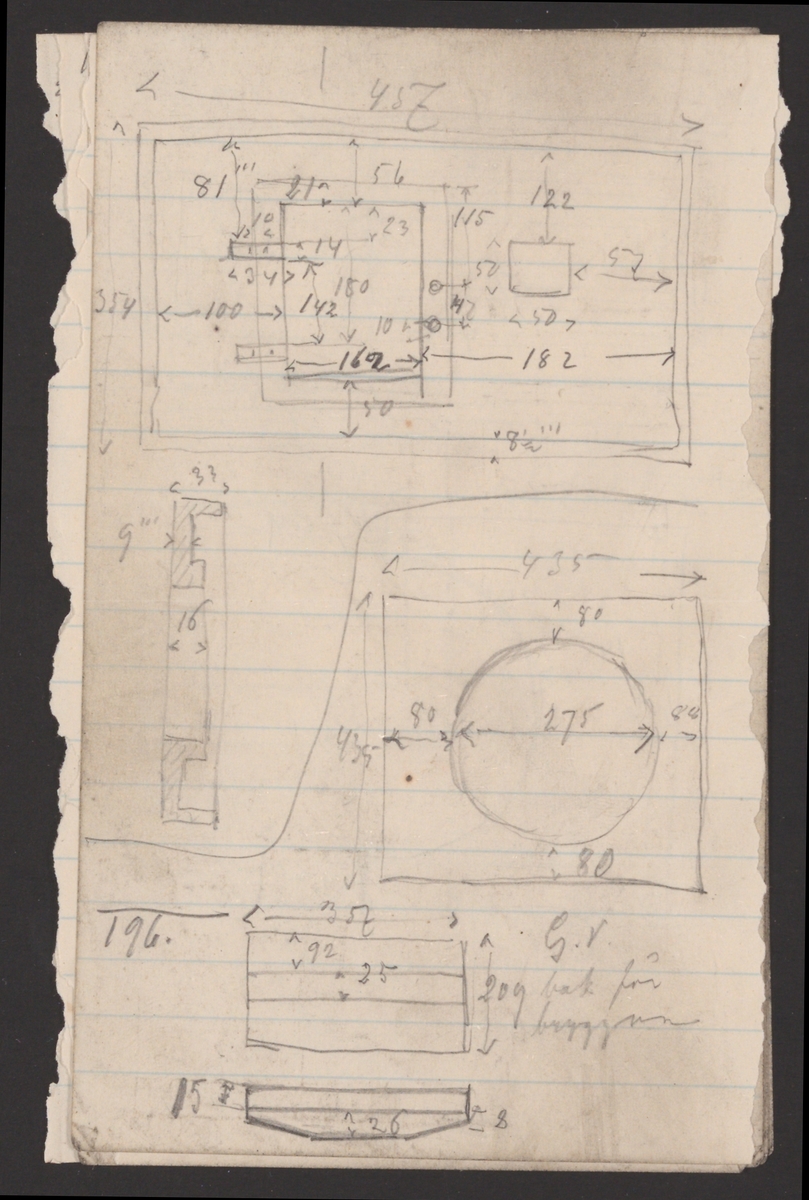 457
81''' 21 56 122
10 23 115
14
34 52 57
354 100 142 180 42 50
10
162 182
50
8½'''
33
9'''
435
16 80
80 275 80
435
80
196. 357 G.V.
92
25
209 bak för
bryggan
15 26 8